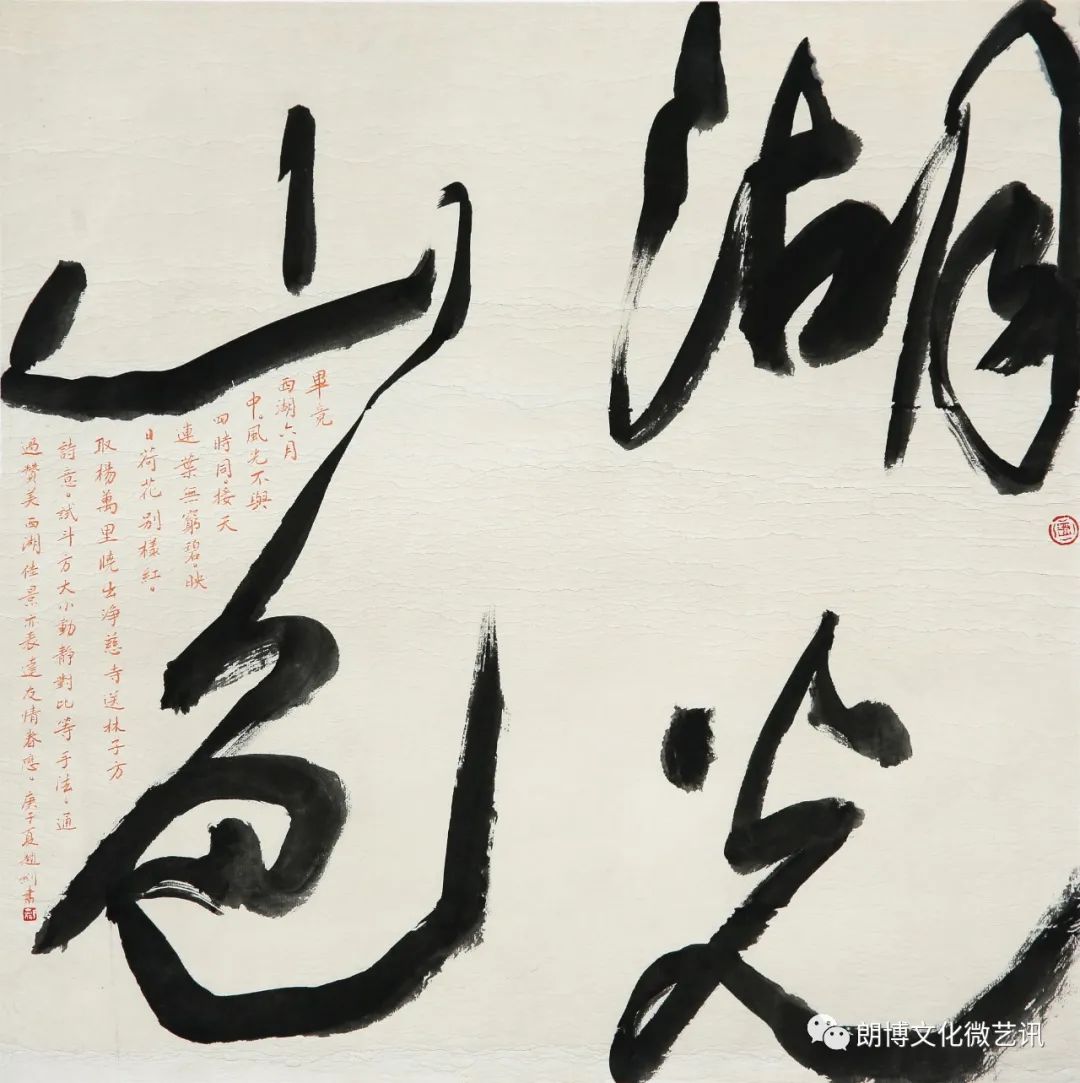 湖光
山色
畢竟
西湖六月
中。風光不與
四時同。接天
連葉無窮碧。映
日荷花别樣紅。
取楊萬里曉出淨慈寺送林子方
詩意。試斗方大小動靜對比等手法。通
過赞美西湖佳景亦表達友情眷戀。庚子夏趙書
朗博文化微艺讯